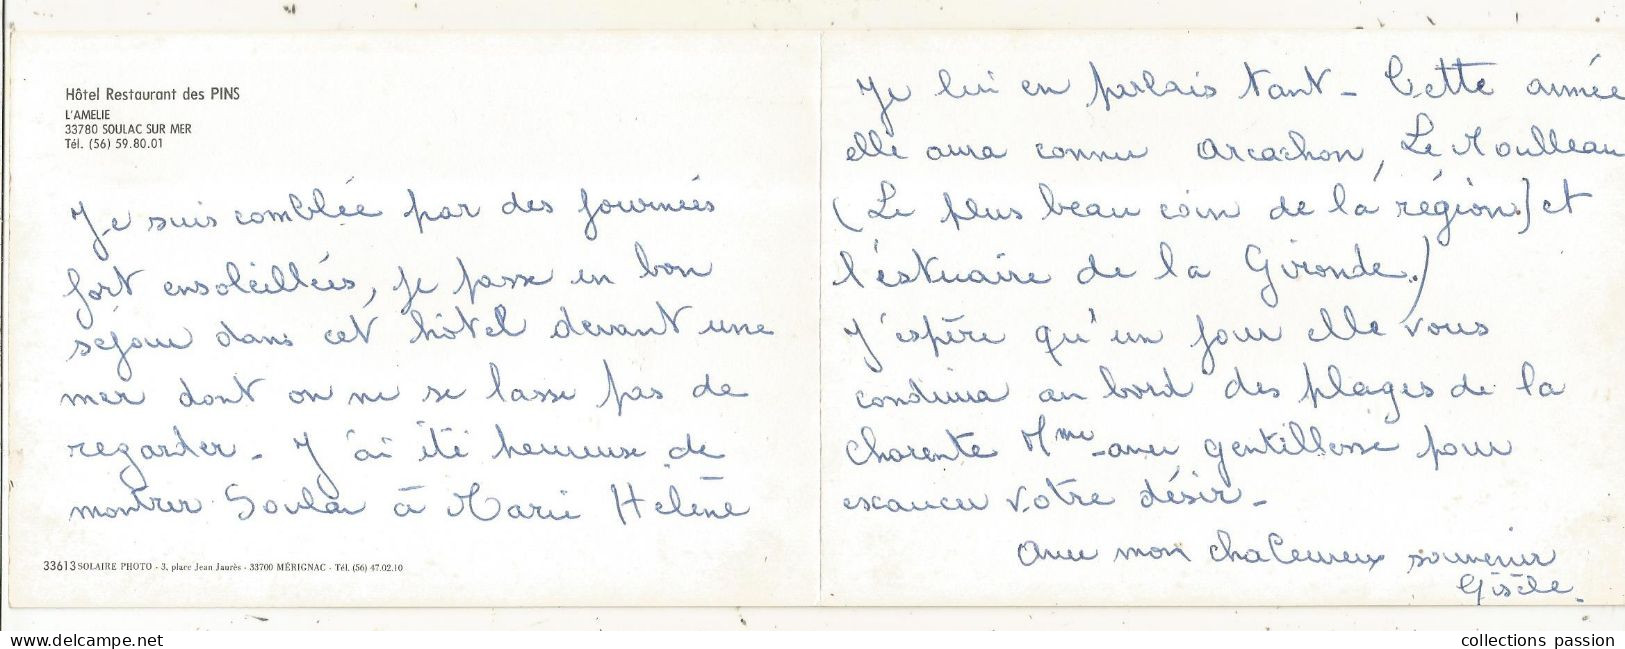 Hôtel Restaurant des PINS
L'AMELIE
33780 SOULAC SUR MER
Tél. (56) 59.80.01
Je suis comblée par des journées
fort ensoleillées, je passe un bon
séjour dans cet hôtel devant une
mer dont on ne se lasse pas de
regarder - J'ai été heureuse de
montrer Soulac à Marie Hélène
33613 SOLAIRE PHOTO - 3, place Jean Jaurès - 33700 MÉRIGNAC - Tél. (56) 47.02.10
Je lui en parlais tant - Cette année
elle aura connu Arcachon, Le Moulleau
(Le plus beau coin de la région) et
l'éstuaire de la Gironde.)
J'espère qu'un jour elle vous
conduira au bord des plages de la
Charente Mme avec gentillesse pour
exaucer votre désir -
Avec mon chaleureux souvenir
Gisèle.
collections passion